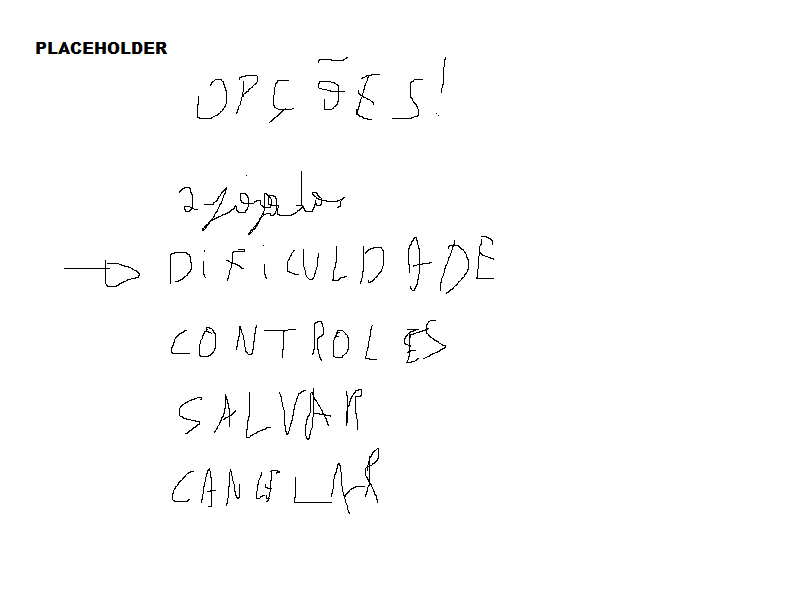 PLACEHOLDER
OPÇÕES!
2 jogadores
DIFICULDADE
CONTROLES
SALVAR
CANCELAR